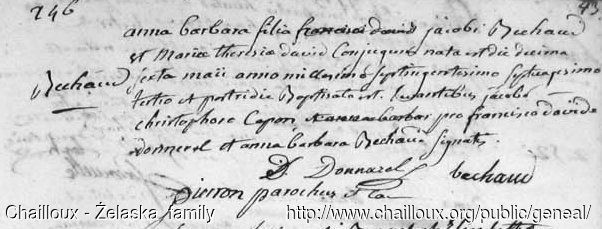 246
anna barbara filia francisci david jacobi Bechaud
et Mariæ Theresiæ david Conjugum nata est die decima
Bechaud
sexta maii anno millesimo septingentesimo septuagesimo
tertio et postridie Baptisata est. Levantibus jacobo
christophoro et anna barbara pro francisco david
et anna barbara Bechaud signatis
D. Donnarel bechaud
pierron parochus
Chailloux - Żelaska family http://www.chailloux.org/public/geneal/